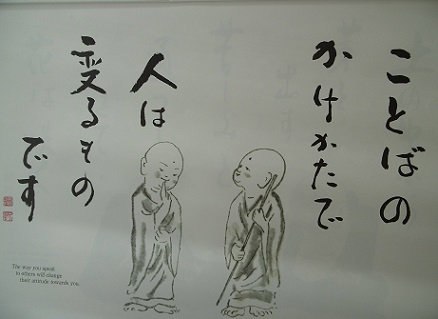 ことばの
かけかたで
人は
変るもの
です
The way you speak
to others will change
their attitude towards you.